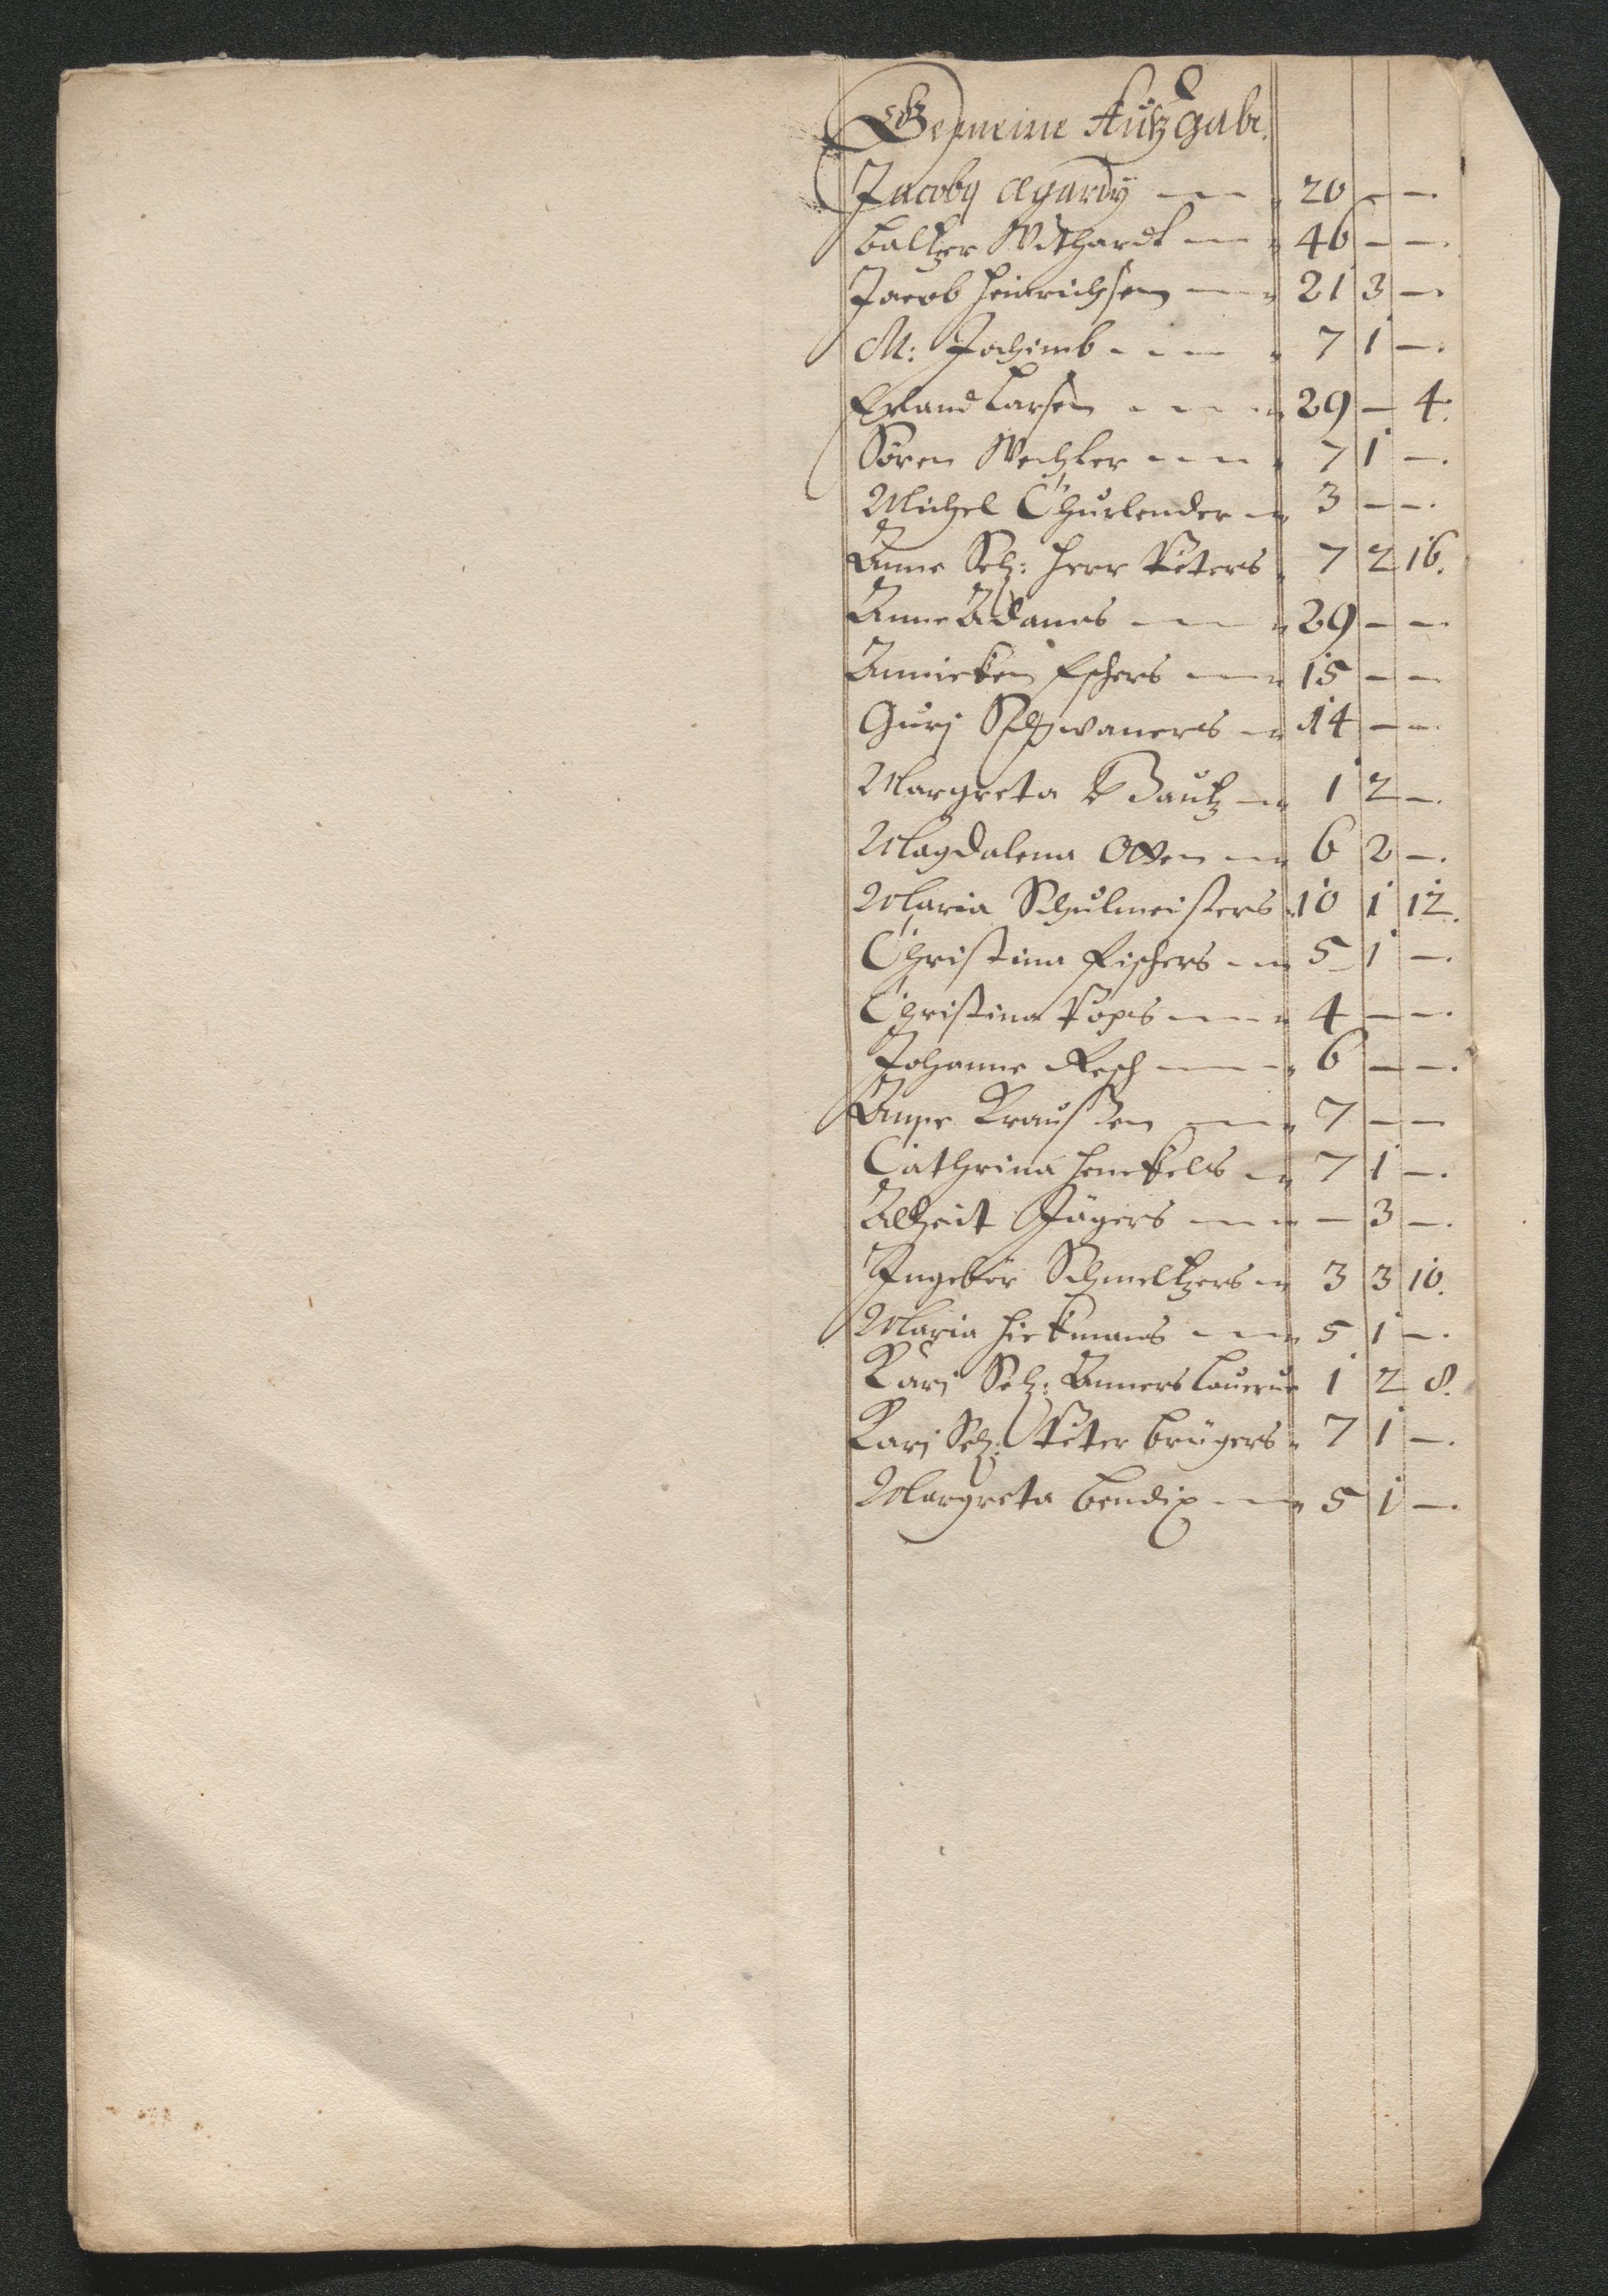 Gemeine Außgabe.
Jacoby Ægardÿ — — 20 — —.
Baltzer Withardt — 46 — —.
Jacob Heinrichsen — 21 3 —.
M: Jochimb - - — 7 1 —.
Erland Larsen - - - 29 — 4.
Sören Wechter - - - 7 1 —.
Michel Churlender — 3 — —.
Anne Sehl: Herr Peters 7 2 16.
Anne Adams — — 29 — —
Annicken Eschers — 15 — —
Gurj Schwaners — 14 — —.
Margreta — 1 2 —.
Magdalena Otten — 6 2 —.
Maria Schulmeisters 10 1 12.
Christina Fischers - — 5 1 —.
Christina Pops — — 4 — —.
Johanne Resch — — 6 — —.
Anne Kraußen — 7 — —
Cathrina Henckels — 7 1 —.
Alheit Jägers — — — 3 —.
Ingebor Schmeltzers — 3 3 10.
Maria Hickmans - — 5 1 —.
Karj Sehl: Anners 1 2 8.
Karj Sehl: Peter Brügers 7 1 —.
Margreta Bendix - — 5 1 —.